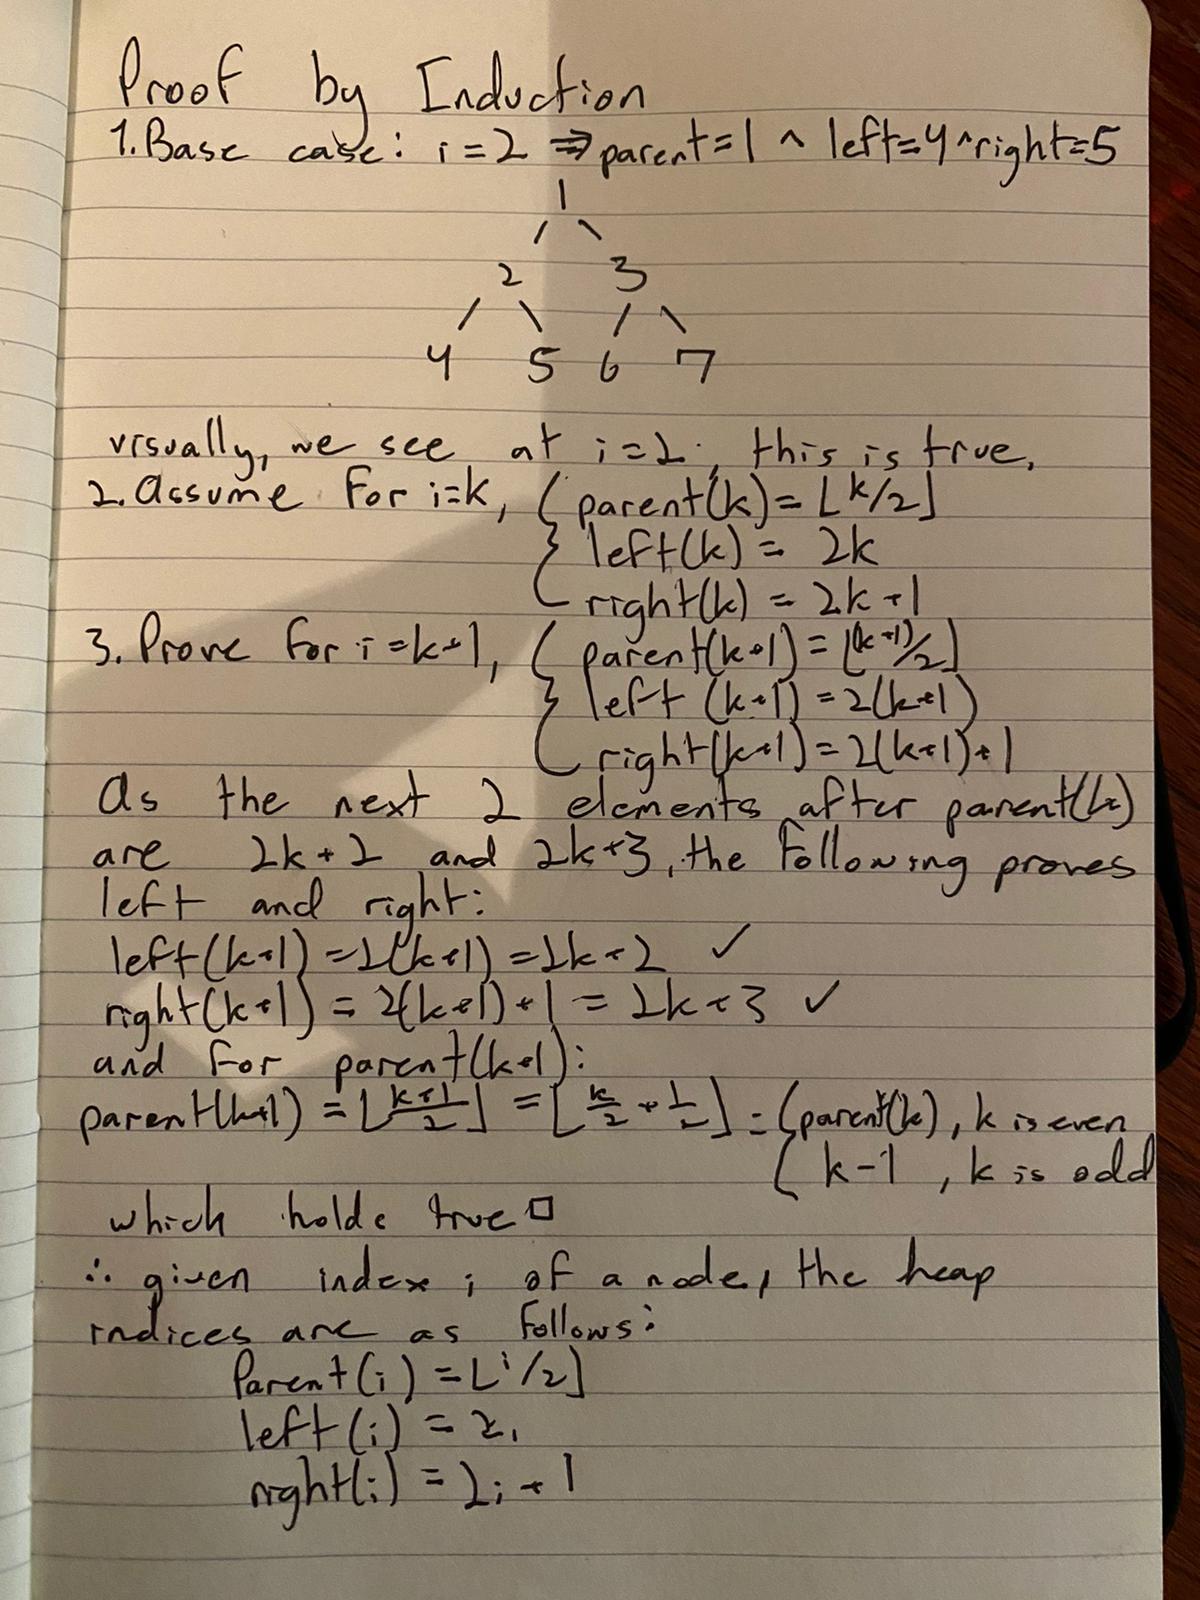 Proof by Induction
1. Base case: i=2 ⇒ parent=1 ^ left=4 ^ right=5
1
/ \
2 3
/ \ / \
4 5 6 7
visually, we see at i=2, this is true.
2. Assume for i=k, { parent(k) = ⌊k/2⌋
left(k) = 2k
right(k) = 2k+1
3. Prove for i=k+1, { parent(k+1) = ⌊(k+1)/2⌋
left (k+1) = 2(k+1)
right(k+1) = 2(k+1)+1
As the next 2 elements after parent(k)
are 2k+2 and 2k+3, the following proves
left and right:
left(k+1) = 2(k+1) = 2k+2 ✓
right(k+1) = 2(k+1)+1 = 2k+3 ✓
and for parent(k+1):
parent(k+1) = ⌊(k+1)/2⌋ = ⌊k/2 + 1/2⌋ = { parent(k), k is even
k-1, k is odd
which holds true □
∴ given index i of a node, the heap
indices are as follows:
Parent(i) = ⌊i/2⌋
left(i) = 2i
right(i) = 2i+1